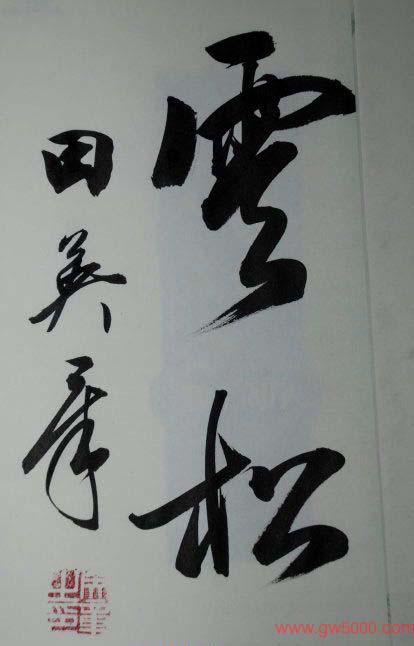 雲松
田英章
www.gw5000.com